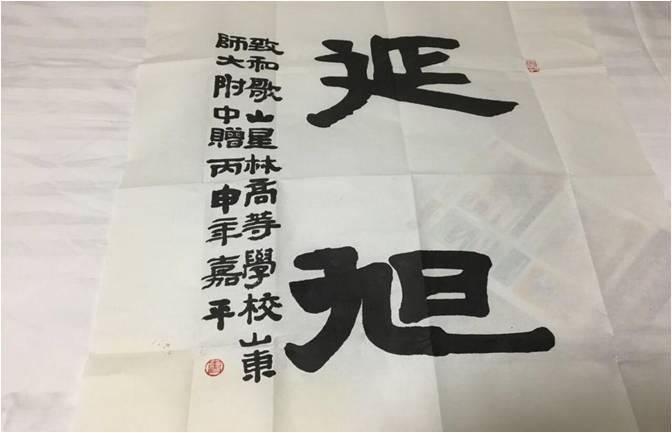 延旭
致和歌山星林高等學校山東
師大附中贈丙申年嘉平